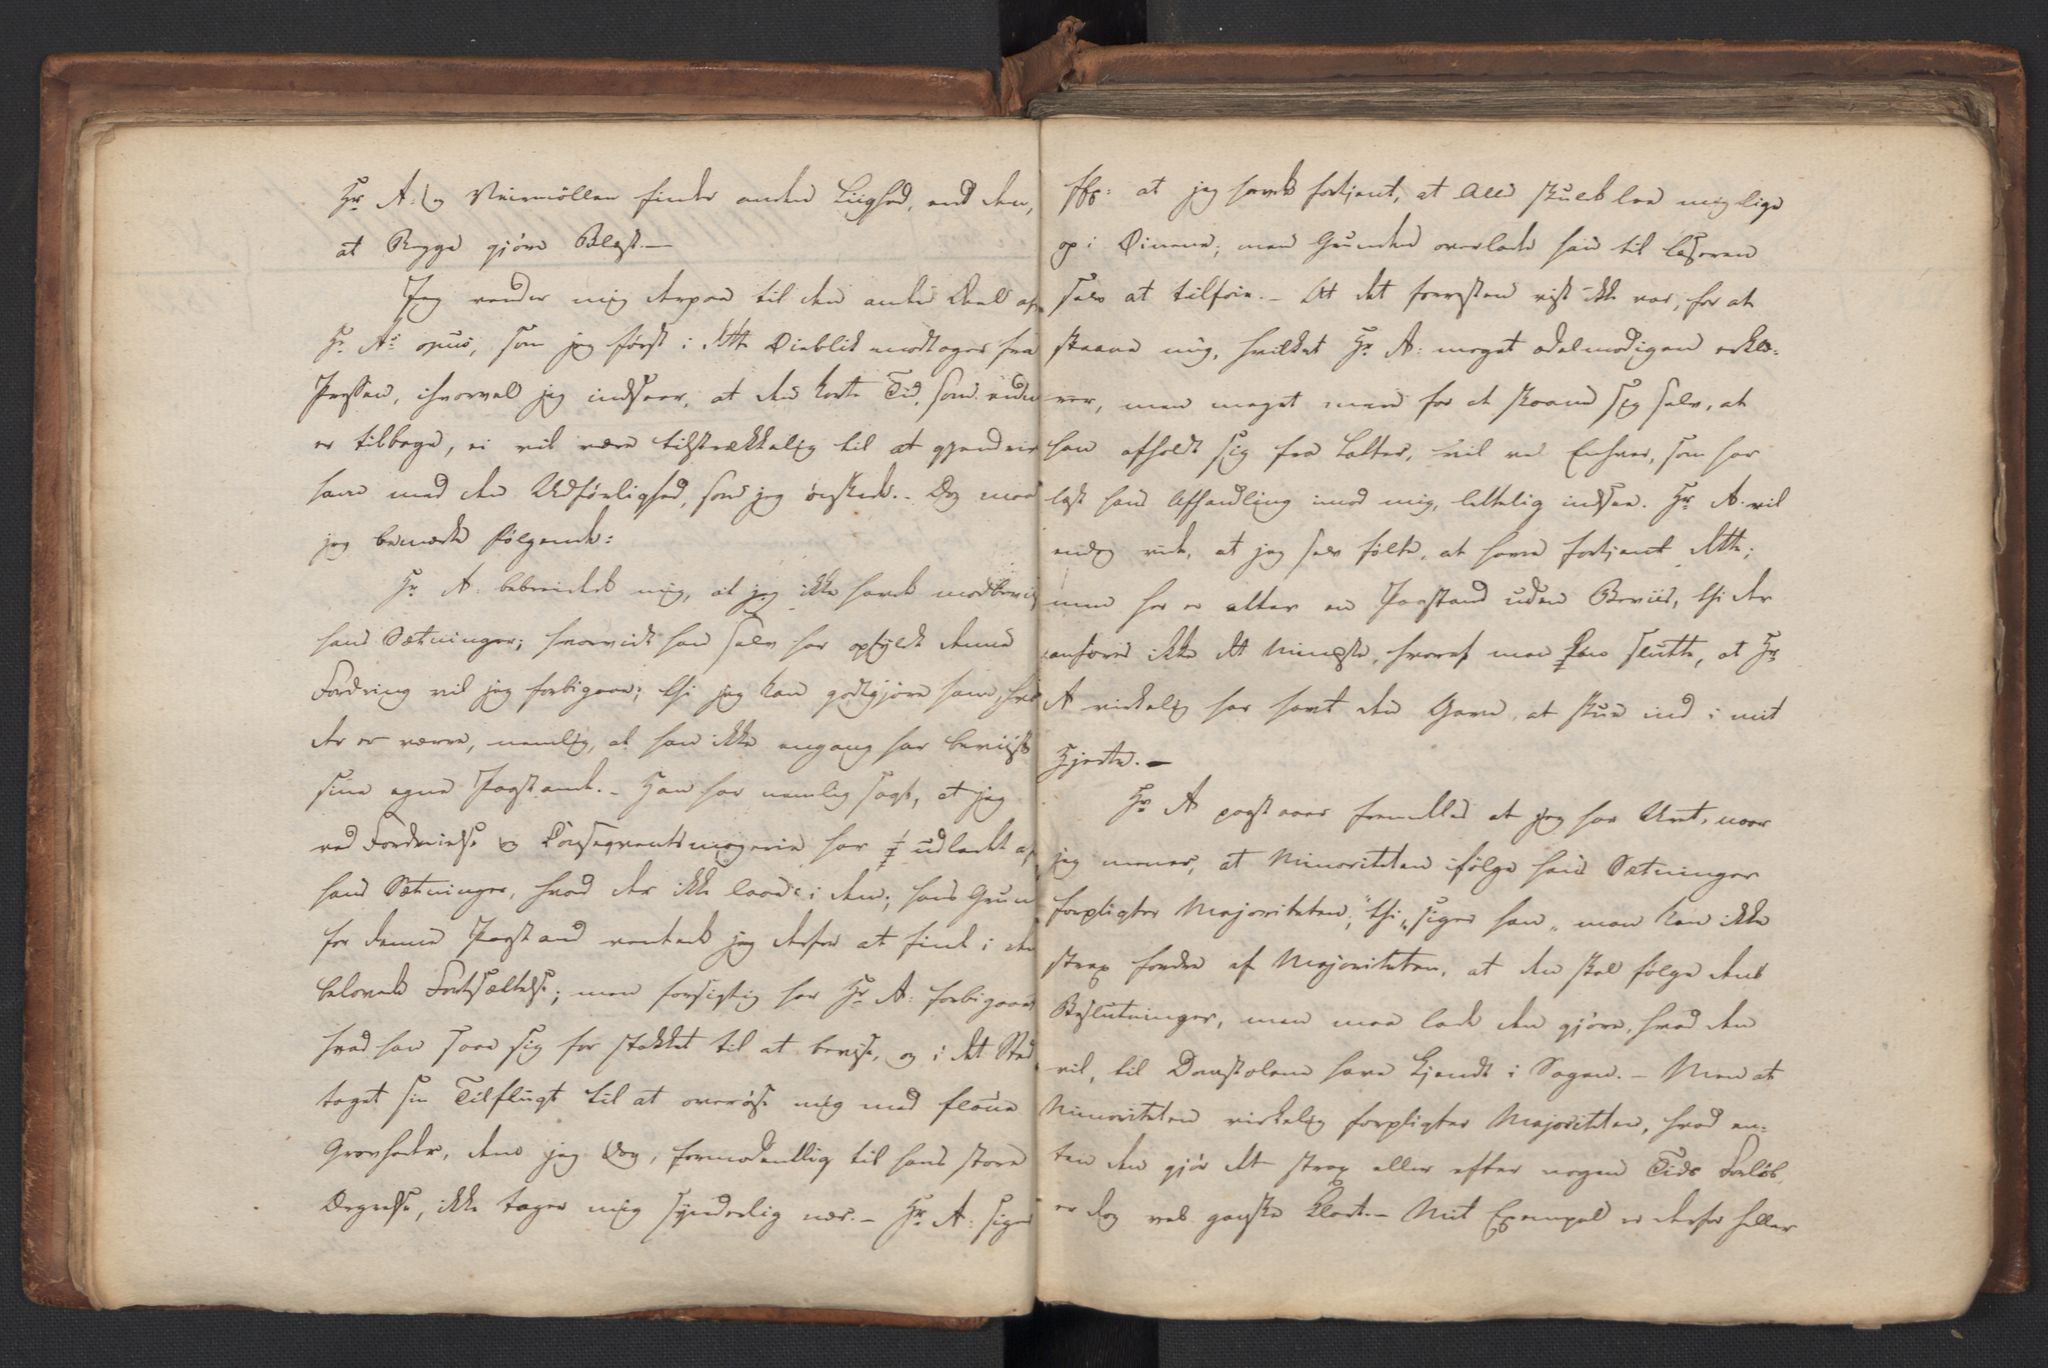 Hr A: og Veirmöllen finder anden Liighed, end den,
at Begge gjöre Blæst.—
Jeg vender mig derpaa til den anden Deel af
Hr A's opus, som jeg først i dette Öieblik modtager fra
Pressen, ihvorvel jeg indseer, at den korte Tid, som endnu
er tilbage, ei vil være tilstrækkelig til at gjendrive
ham med den Udførlighed, som jeg ønskede.- Dog maa
jeg bemærke følgende:
Hr A: bebreidede mig, at jeg ikke havde modbeviist
hans Sætninger; hvorvidt han selv har opfyldt denne
Fordring vil jeg forbigaae; thi jeg kan godtgjöre ham, hvad
der er værre, nemlig, at han ikke engang har beviist
sine egne Paastande.- Han har nemlig sagt, at jeg
ved Fordreielse og Conseqventsmagerie har udledet af
hans Sætninger, hvad der ikke laae i dem; hans Grund
for denne Paastand ventede jeg derfor at finde i den
belovede Fortsættelse; men forsigtig har Hr A: forbigaaet
hvad han saae sig for stakket til at bevise, og i det Sted
taget sin Tilflugt til at overøse mig med flaue
Grovheder, dem jeg dog, formodentlig til hans store
Ærgrelse, ikke tager mig synderlig nær.- Hr A: siger
at jeg havde fortjent, at Alle skulde lee mig lige
op i Öinene; men Grunden overlader han til Læseren
selv at tilföie.- At det forresten vist ikke var, for at
skaane mig, hvilket Hr A: meget ædelmodigen erklæ=
rer, men meget mere for at skaane sig selv, at
han afholdt sig fra Latter, vil vel Enhver, som har
læst hans Afhandling imod mig, lettelig indsee. Hr A: vil
endog vide, at jeg selv følte, at have fortjent dette;
men her er atter en Paastand uden Beviis, thi der
anføres ikke det Mindste, hvoraf man kan slutte, at Hr
A virkelig har havt den Gave, at skue ind i mit
Hjerte.—
Hr A paastaaer fremdeles at jeg har Uret, naar
jeg mener, at Minoriteten ifølge hans Sætninger
forpligter Majoriteten; "thi" siger han "man kan ikke
strax fordre af Majoriteten, at den skal følge dens
Beslutninger, men maa lade den gjöre, hvad den
vil, til Domstolene have kjendt i Sagen.- Men at
Minoriteten virkelig forpligter Majoriteten, hvad en=
ten den gjör det strax eller efter nogen Tids Forløb,
er dog vel ganske klart.- Mit Exempel er derfor heller